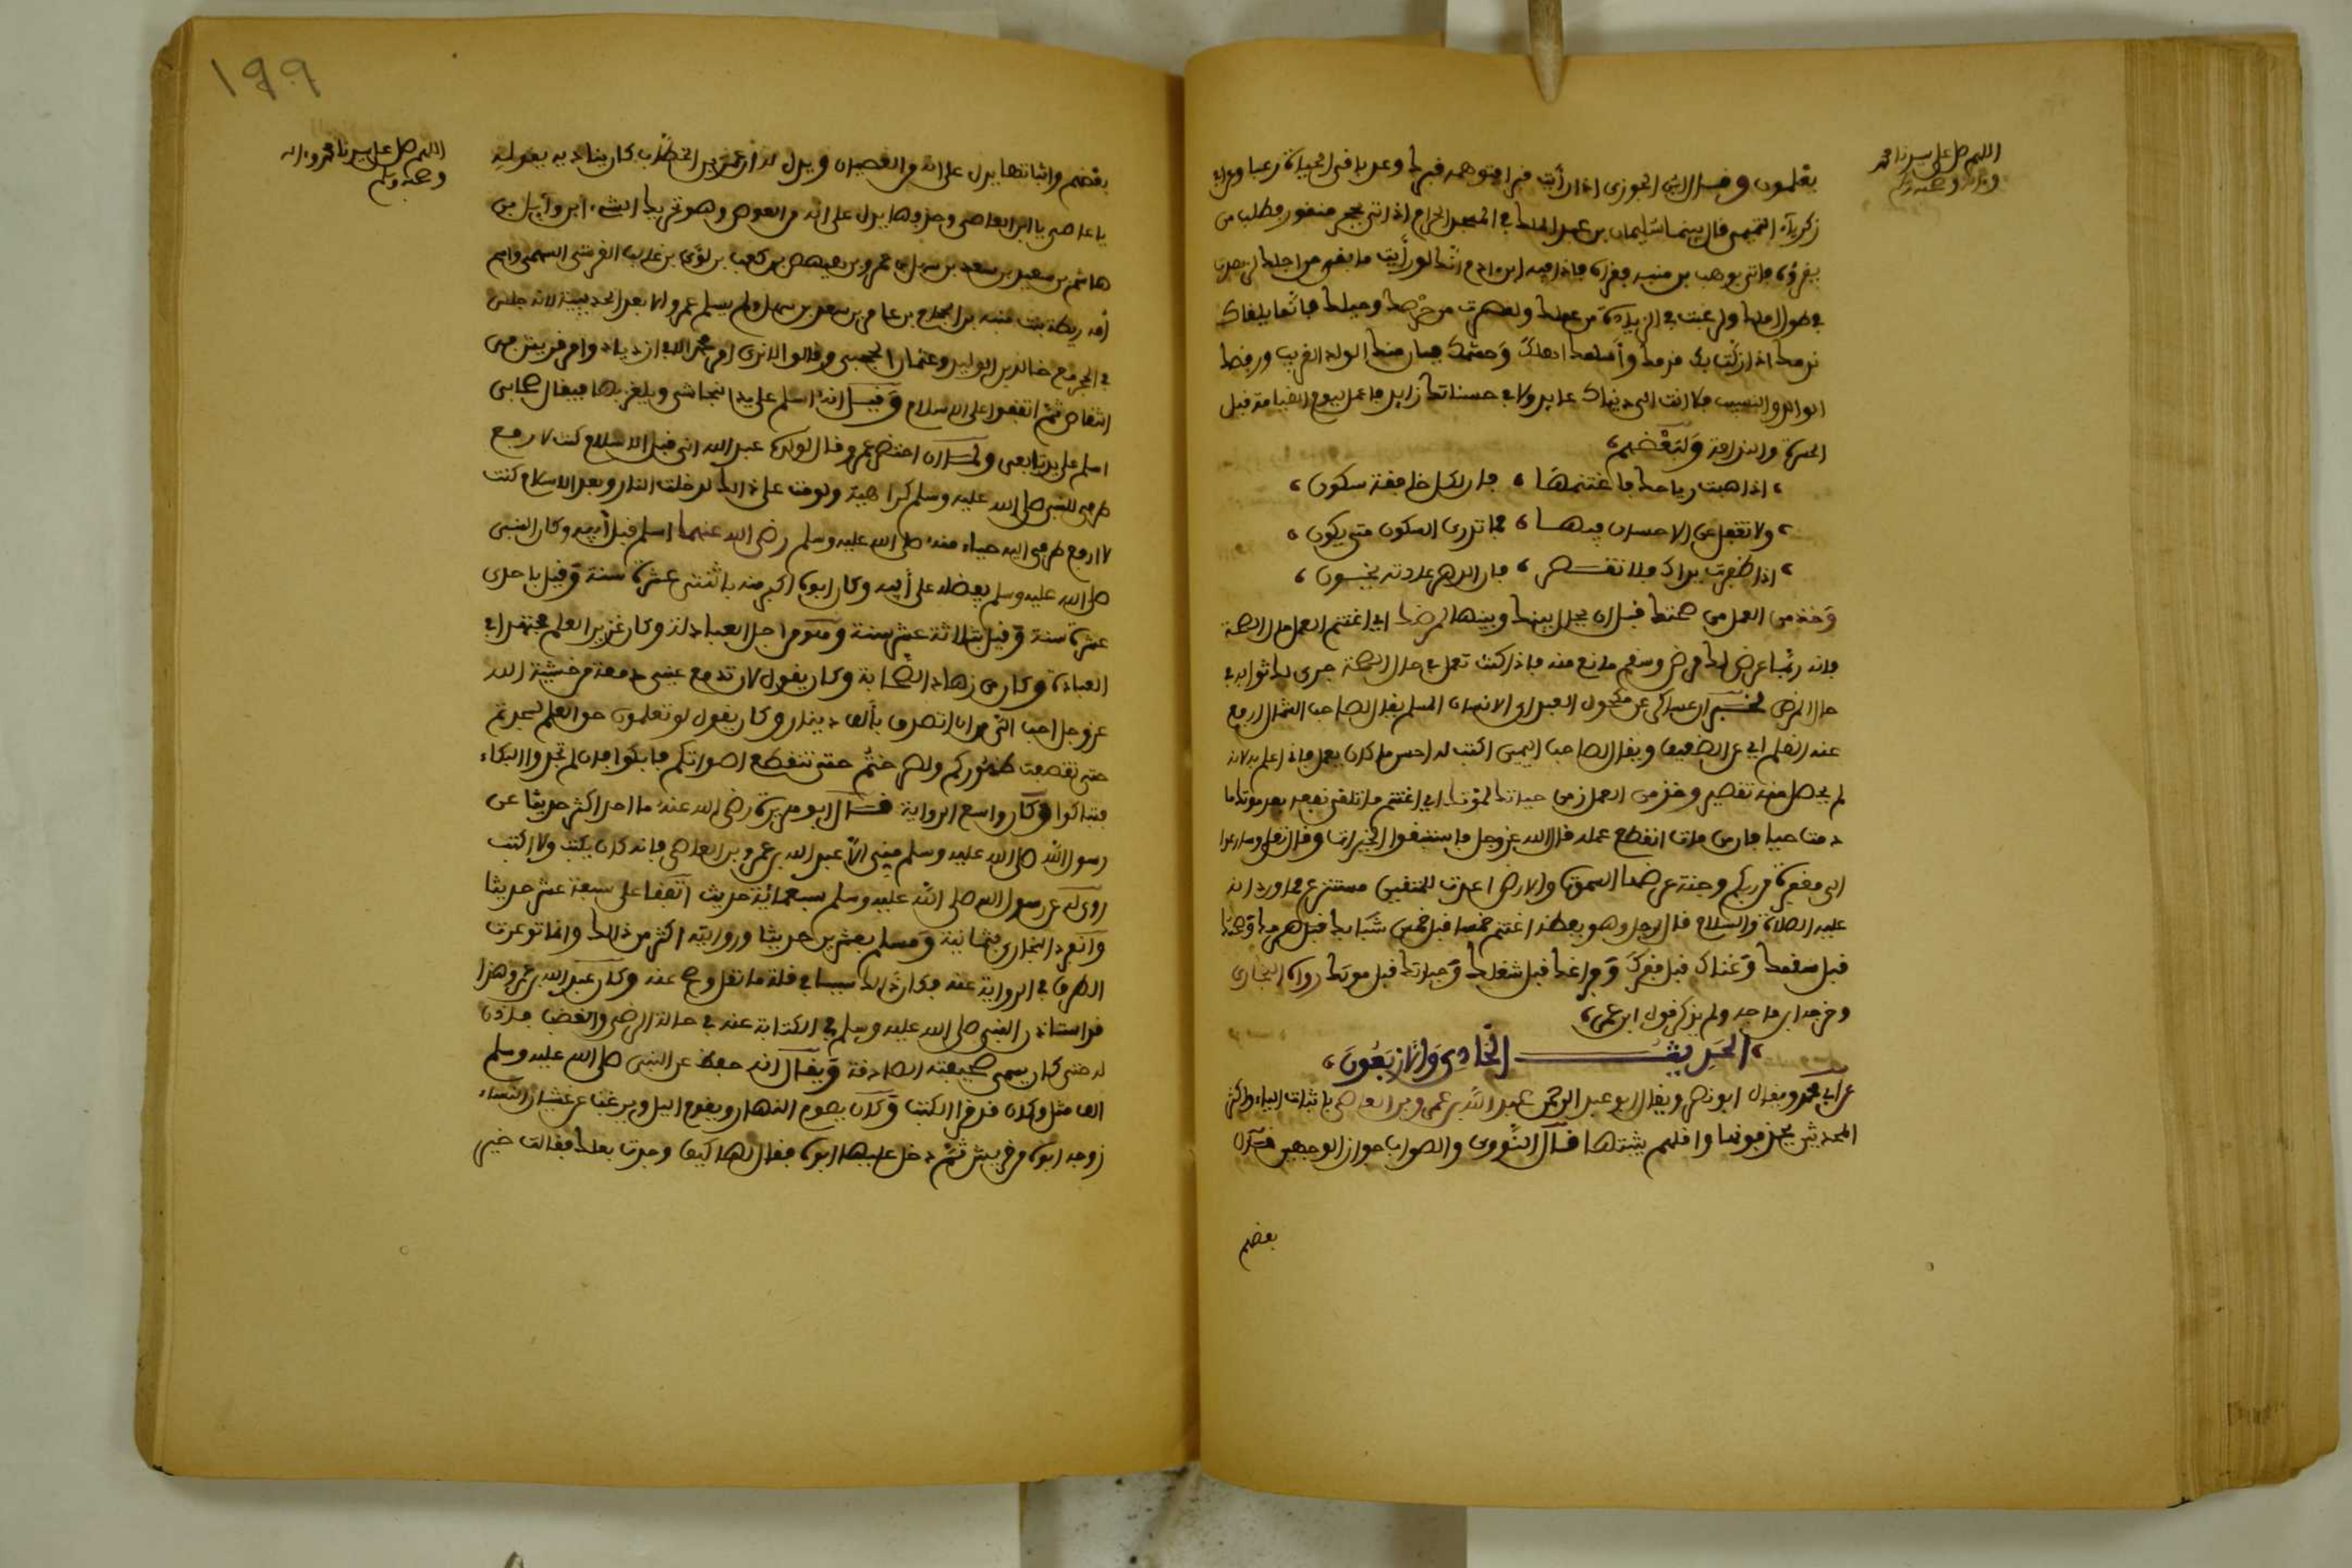 اللهم صل على سيدنا محمد
وءاله وصحبه وسلم
يعلمون وقال ابن الجوزى اذا رأيت قبرا فتوهمه قبرك وعد باقى الحياة ربحا وعن ابى
زكرياء التيمى قال بينما سليمان بن عبد الملك فى المسجد الحرام اذ اتى بحجر منقور فطلب من
يقرؤه فاتى بوهب بن منبه فقرأه فاذا فيه ابن ءادم انك لو رأيت ما بقى من اجلك لزهدت
فى طول املك ولرغبت فى الزيادة من عملك ولقصرت من حرصك وحيلك فانما يلقاك
ندمك اذا زلت بك قدمك وأسلمك اهلك وحشمك فبان منك الولد القريب ورفضك
الوالد والنسيب فلا انت الى دنياك عايد ولا فى حسناتك زايد فاعمل ليوم القيامة قبل
الحسرة والندامة ولبعضهم
اذا هبت رياحك فاغتنمها ، فان لكل خافقة سكون
ولا تغفل عن الاحسان فيها ، فما تدرى السكون متى يكون
اذا ظفرت يداك فلا تقصر ، فان الدهر عادته يخون
وخذ من العمل من صحتك قبل ان يحال بينك وبينها لمرضك اي اغتنم العمل حال الصحة
فانه ربما عرض لك مرض وسقم مانع منه فاذا كنت تعمل فى حال الصحة جرى لك ثوابه فى
حال المرض لخبر ابن عساكر عن مكحول العبد اى الانسان المسلم يقال لصاحب الشمال ارفع
عنه القلم اي عن الضعيف ويقال لصاحب اليمين اكتب له احسن ما كان يعمل فانى اعلم به لانه
لم يحصل منه تقصير وخذ من العمل زمن حياتك لموتك اي اغتنم ما تلقى نفعه بعد موتك ما
دمت حيا فان من مات انقطع عمله قال الله عز وجل فاستبقوا الخيرات وقال تعلى وسارعوا
الى مغفرة من ربكم وجنة عرضها السموات والارض اعدت للمتقين منتزع مما ورد انه
عليه الصلاة والسلام قال لرجل وهو يعظه اغتنم خمسا قبل خمس شبابك قبل هرمك وصحتك
قبل سقمك وغناك قبل فقرك وفراغك قبل شغلك وحياتك قبل موتك رواه البخارى
وخرجه ابن ماجه ولم يذكر قول ابن عمر
الحديث الحادى والاربعون
عن ابى محمد ويقال ابو نصر ويقال ابو عبد الرحمن عبد الله بن عمرو بن العاصى باثبات الياء واكثر
المحدثين يحذفونها واقلهم يثبتها قال النووى والصواب جواز الوجهين قال
بعضهم
١٩٩
اللهم صل على سيدنا محمد وءاله
وصحبه وسلم
بعضهم واثباتها يدل على انه من العصيان ويدل له ان عمر بن الخطاب كان يناديه بقوله
يا عاصى يا ابن العاصى وحذفها يدل على انه من العوص وهو تحريك الشىء ابن وآيل بن
هاشم بن سعيد بن سعد بن سهل بن عمرو بن هصيص بن كعب بن لؤى بن غالب القرشى السهمى واسم
أمه ريطة بنت منبه بن الحجاج بن عامر بن سعد بن سهل ولم يسلم عمرو الا بعد الحديبية لانه جلس
فى الحجر مع خالد بن الوليد وعثمان الحجبى وقالوا الا نرى امر محمد الا فى ازدياد وامر قريش فى
انتقاص ثم اتفقوا على الاسلام وقيل انه اسلم على يد النجاشى ويلغز بها فيقال صحابى
اسلم على يد تابعى ولما ان احتضر عمرو قال لولده عبد الله انى قبل الاسلام كنت لا ارفع
طرفى للنبى صلى الله عليه وسلم كراهية ولو مت على ذالك لدخلت النار وبعد الاسلام كنت
لا ارفع طرفى اليه حياء منه صلى الله عليه وسلم رضى الله عنهما اسلم قبل أبيه وكان النبى
صلى الله عليه وسلم يفضله على أبيه وكان ابوه اكبر منه باثنتى عشرة سنة وقيل باحدى
عشرة سنة وقيل بثلاثة عشر سنة وهو من اجل العبادلة وكان غزير العلم مجتهدا فى
العبادة وكان من زهاد الصحابة وكان يقول لان تدمع عينى دمعة من خشية الله
عز وجل احب الى من ان اتصدق بألف دينار وكان يقول لو تعلمون حق العلم لسجدتم
حتى تقصمت ظهوركم ولصرختم حتى تنقطع اصواتكم فابكوا فان لم تجدوا البكاء
فتباكوا وكان واسع الرواية قال ابو هريرة رضى الله عنه ما احد اكثر حديثا عن
رسول الله صلى الله عليه وسلم منى الا عبد الله بن عمرو بن العاصى فانه كان يكتب ولا اكتب
روى له عن رسول الله صلى الله عليه وسلم سبعمائة حديث اتفقا على سبعة عشر حديثا
وانفرد البخارى بثمانية ومسلم بعشرين حديثا وروايته اكثر من ذالك وانما توعرت
الطرق فى الرواية عنه فكان ذالك سببا فى قلة ما نقل وصح عنه وكان عبد الله بن عمرو هذا
قد استاذن النبى صلى الله عليه وسلم فى الكتابة عنه فى حالة الرضى والغضب فاذن
له حتى كان يسمى صحيفته الصادقة ويقال انه حفظ عن النبى صلى الله عليه وسلم
الف مثل وكان قد قرأ الكتب وكان يصوم النهار ويقوم اليل ويرغب عن غشيان النساء
زوجه ابوه من قريش ثم دخل عليها ابوه فقال لها كيف وجدت بعلك فقالت خير